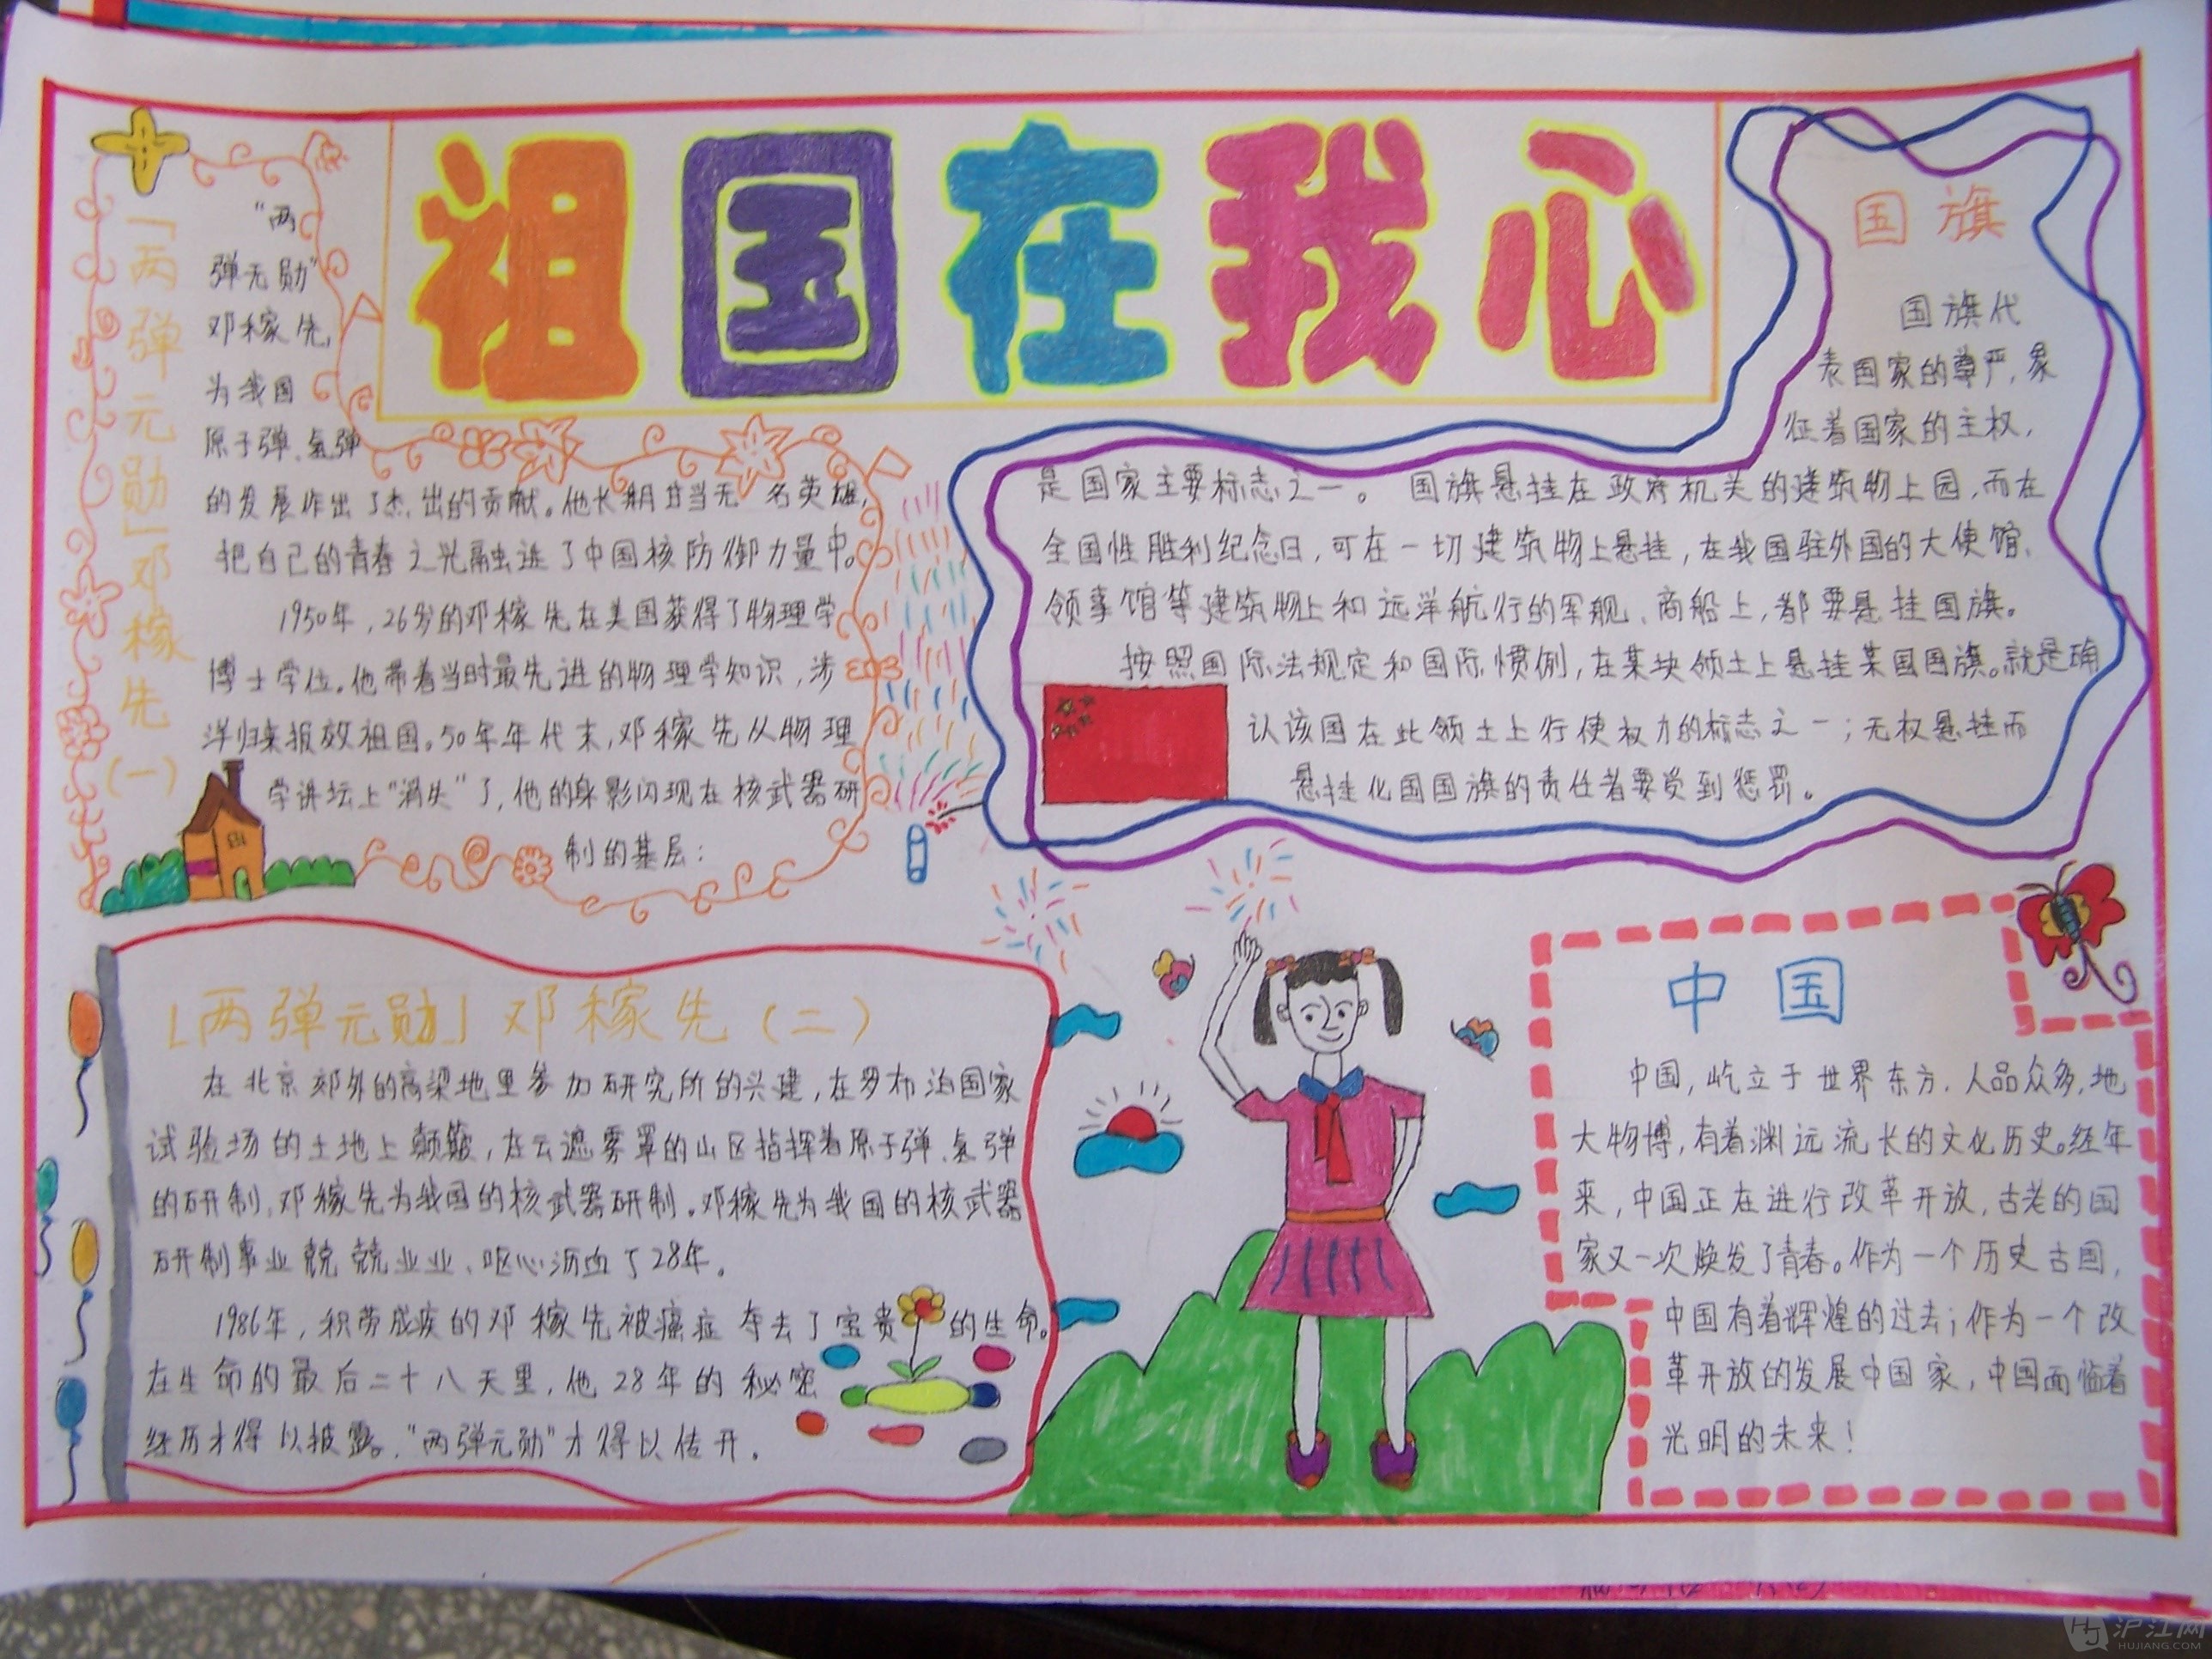 祖国在我心
「两弹元勋」邓稼先(一)
“两
弹元勋”
邓稼先,
为我国
原子弹、氢弹
的发展作出了杰出的贡献。他长期甘当无名英雄,
把自己的青春之光融进了中国核防御力量中。
1950年,26岁的邓稼先在美国获得了物理学
博士学位。他带着当时最先进的物理学知识,涉
洋归来报效祖国。50年年代末,邓稼先从物理
学讲坛上“消失”了,他的身影闪现在核武器研
制的基层:
国旗
国旗代
表国家的尊严,象
征着国家的主权,
是国家主要标志之一。国旗悬挂在政府机关的建筑物上园,而在
全国性胜利纪念日,可在一切建筑物上悬挂,在我国驻外国的大使馆、
领事馆等建筑物上和远洋航行的军舰、商船上,都要悬挂国旗。
按照国际法规定和国际惯例,在某块领土上悬挂某国国旗。就是确
认该国在此领土上行使权力的标志之一;无权悬挂而
悬挂化国国旗的责任者要受到惩罚。
「两弹元勋」邓稼先(二)
在北京郊外的高粱地里参加研究所的兴建,在罗布泊国家
试验场的土地上颠簸,在云遮雾罩的山区指挥着原子弹、氢弹
的研制,邓稼先为我国的核武器研制。邓稼先为我国的核武器
研制事业兢兢业业、呕心沥血了28年。
1986年,积劳成疾的邓稼先被癌症夺去了宝贵的生命。
在生命的最后二十八天里,他28年的秘密
经历才得以披露。“两弹元勋”才得以传开。
中国
中国,屹立于世界东方.人品众多,地
大物博,有着渊远流长的文化历史。经年
来,中国正在进行改革开放,古老的国
家又一次焕发了青春。作为一个历史古国,
中国有着辉煌的过去;作为一个改
革开放的发展中国家,中国面临着
光明的未来!
HJ 沪江网
HUJIANG.COM